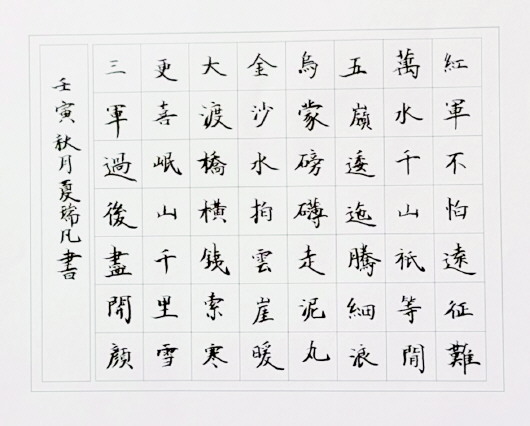 紅軍不怕遠征難
萬水千山祇等閒
五嶺逶迤騰細浪
烏蒙磅礴走泥丸
金沙水拍雲崖暖
大渡橋橫鐵索寒
更喜岷山千里雪
三軍過後盡開顏
壬寅秋月夏瑞凡書